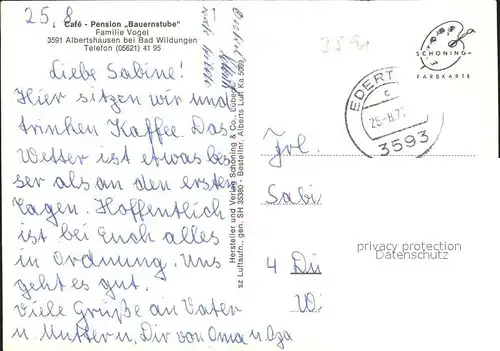 25.8
Café - Pension „Bauernstube"
Familie Vogel
3591 Albertshausen bei Bad Wildungen
Telefon (05621) 41 95
Liebe Sabine!
Hier sitzen wir und
trinken Kaffee. Das
Wetter ist etwas bes
ser als an den ersten
Tagen. Hoffentlich
ist bei Euch alles
in Ordnung. Uns
geht es gut.
Viele Grüße an Vater
u. Mutter u. Dir von Oma u. Opa
Hersteller und Verlag Schöning & Co., Lübeck
sz Luftaufn., gen. SH 35380 - Bestellnr. Alberts Luft Ka 5069
3591
SCHÖNING-
FARBKARTE
EDERT
c
25.-8.7
3593
Frl.
Sabi
privacy protection
Datenschutz
4 Dü
W